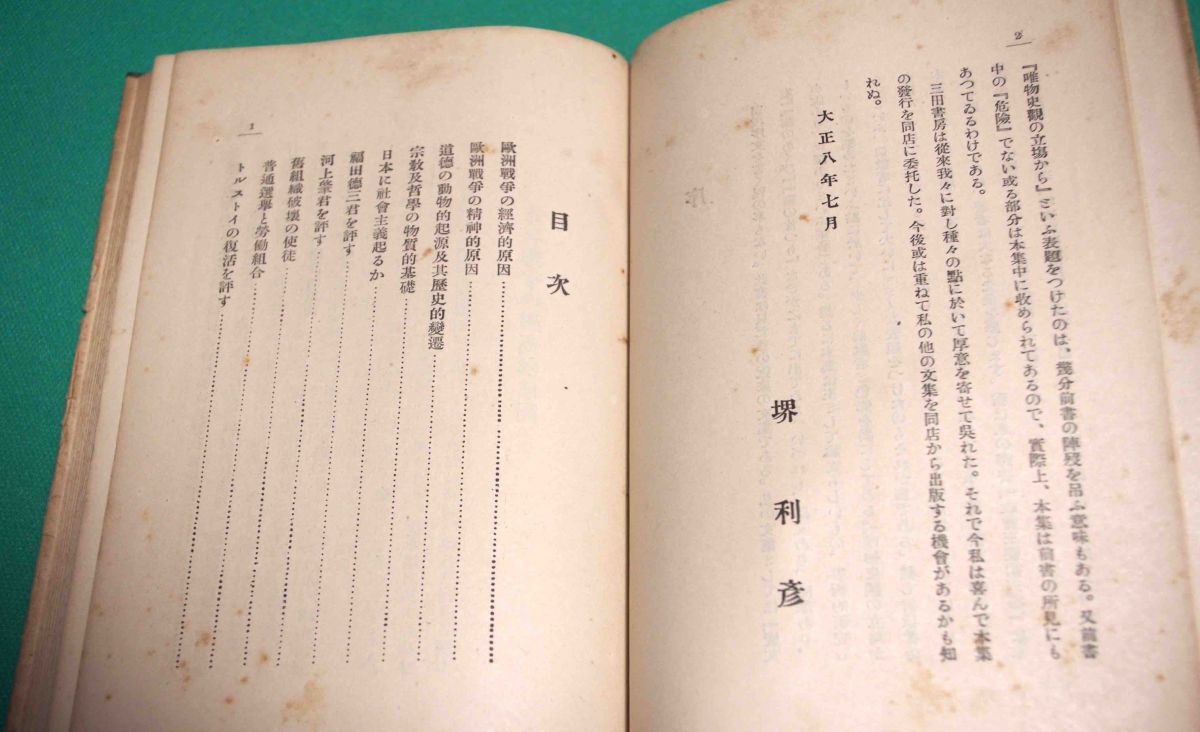 2
『唯物史觀の立場から』といふ表題をつけたのは、幾分前書の陣歿を吊ふ意味もある。又前書
中の『危險』でない或る部分は本集中に收められてあるので、實際上、本集は前書の所見にも
あつてゐるわけである。
三田書房は從來我々に對し種々の點に於いて厚意を寄せて吳れた。それで今私は喜んで本集
の發行を同店に委托した。今後或は重ねて私の他の文集を同店から出版する機會があるかも知
れぬ。
大正八年七月
堺利彥
目次
歐洲戰爭の經濟的原因
歐洲戰爭の精神的原因
道德の動物的起源及其歷史的變遷
宗敎及哲學の物質的基礎
日本に社會主義起るか
福田德三君を評す
河上肇君を評す
舊組織破壞の使徒
普通選擧と勞働組合
トルストイの復活を評す
1